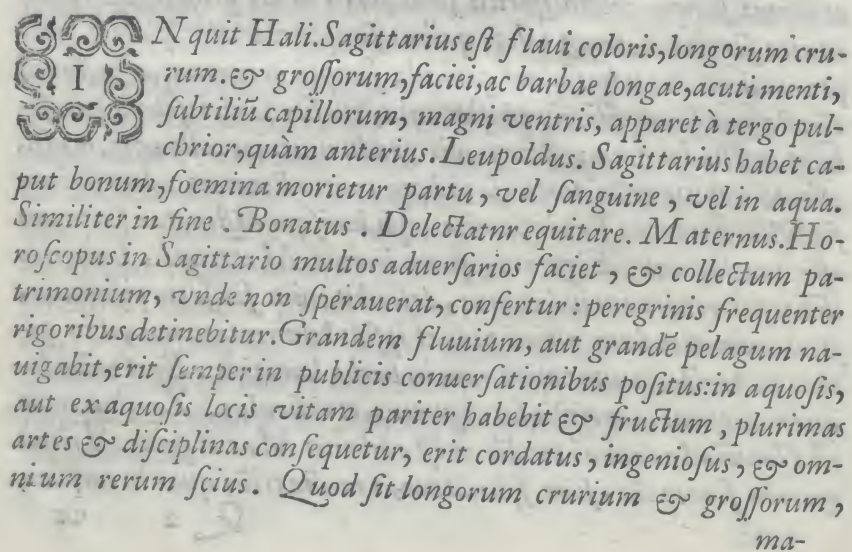 INquit Hali.Sagittarius eſt flaui coloris,longorum cru-
rum.& groſſorum,faciei,ac barbae longae,acuti menti,
ſubtiliũ capillorum, magni ventris, apparet à tergo pul-
chrior,quàm anterius. Leupoldus. Sagittarius habet ca-
put bonum,foemina morietur partu, vel ſanguine, vel in aqua.
Similiter in fine. Bonatus. Delectatnr equitare. Maternus.Ho-
roſcopus in Sagittario multos aduerſarios faciet, & collectum pa-
trimonium, vnde non ſperauerat, confertur: peregrinis frequenter
rigoribus detinebitur.Grandem fluuium, aut grandẽ pelagum na-
uigabit,erit ſemper in publicis conuerſationibus poſitus:in aquoſis,
aut ex aquoſis locis vitam pariter habebit & fructum, plurimas
artes & diſciplinas conſequetur, erit cordatus, ingenioſus, & om-
nium rerum ſcius. Quod ſit longorum crurium & groſſorum,
ma-